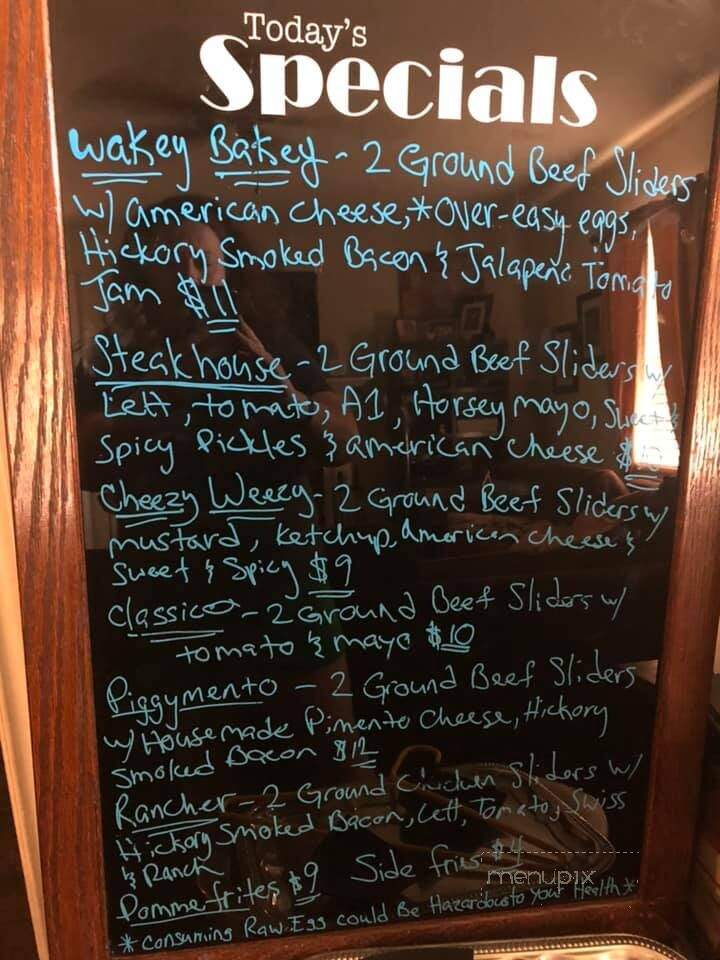 Today's
Specials
Wakey Bakey - 2 Ground Beef Sliders
w/ American cheese, *over-easy eggs,
Hickory Smoked Bacon & Jalapeno Tomato
Jam $11
Steakhouse - 2 Ground Beef Sliders w/
Lett, tomato, A1, Horsey mayo, Sweet &
Spicy Pickles & american cheese
Cheezy Weezy - 2 Ground Beef Sliders w/
mustard, ketchup, American cheese &
Sweet & Spicy $9
Classico - 2 Ground Beef Sliders w/
tomato & mayo $10
Piggymento - 2 Ground Beef Sliders
w/ Housemade Pimento Cheese, Hickory
Smoked Bacon $12
Rancher - 2 Ground Chicken Sliders w/
Hickory Smoked Bacon, Lett, Tomato, Swiss
& Ranch
Pomme frites $9 Side fries $4
menupix
* Consuming Raw Egg could Be Hazardous to Your Health *